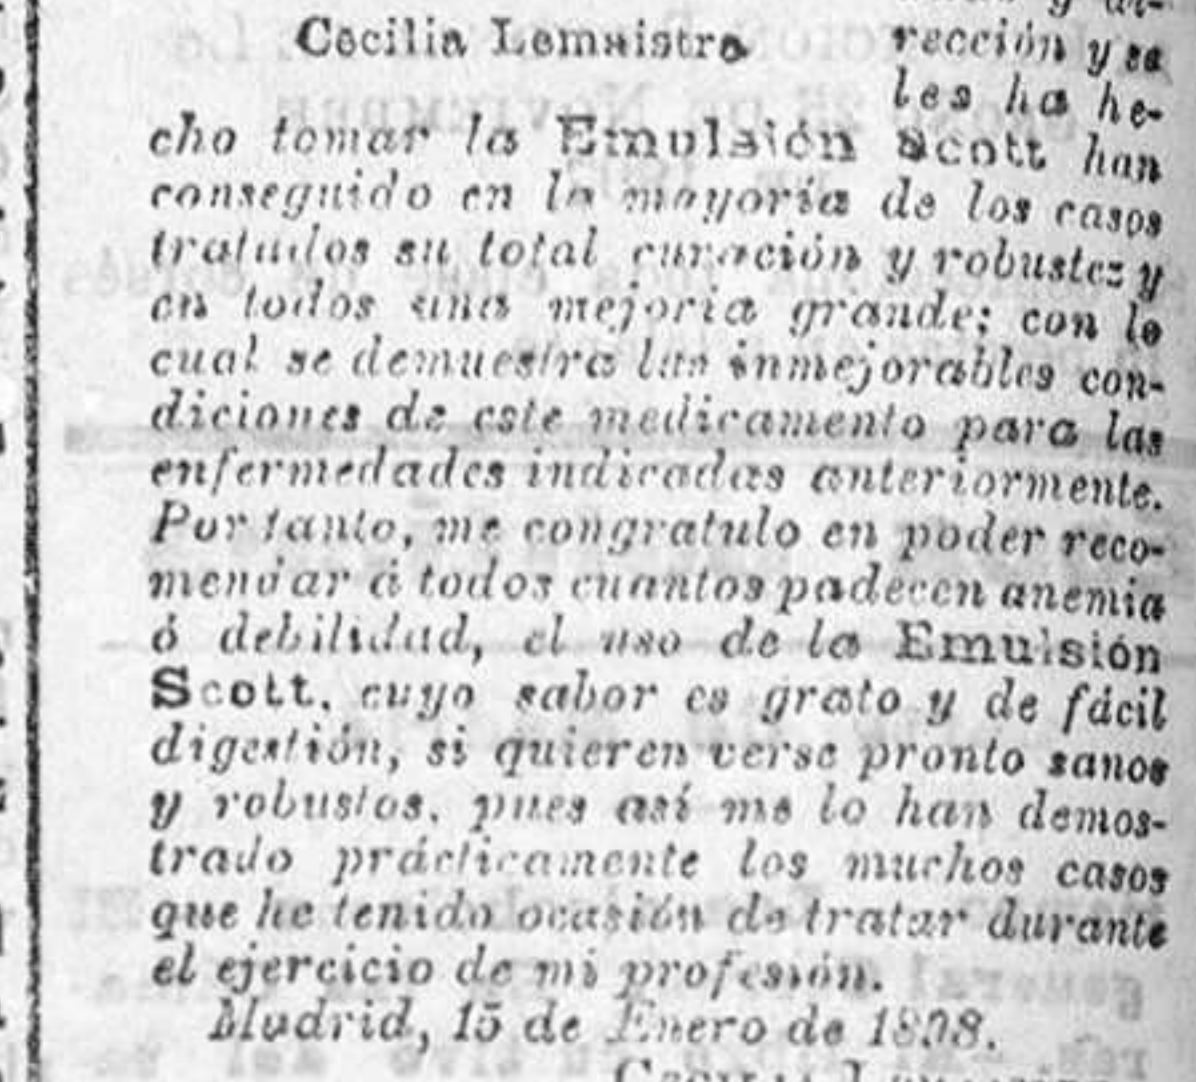 Cecilia Lemaistre
rección y se
les ha he-
cho tomar la Emulsión Scott han
conseguido en la mayoría de los casos
tratados su total curación y robustez y
en todos una mejoria grande; con lo
cual se demuestra las inmejorables con-
diciones de este medicamento para las
enfermedades indicadas anteriormente.
Por tanto, me congratulo en poder reco-
mendar á todos cuantos padecen anemia
ó debilidad, el uso de la Emulsión
Scott, cuyo sabor es grato y de fácil
digestión, si quieren verse pronto sanos
y robustos, pues así me lo han demos-
trado prácticamente los muchos casos
que he tenido ocasión de tratar durante
el ejercicio de mi profesión.
Madrid, 15 de Enero de 1898.